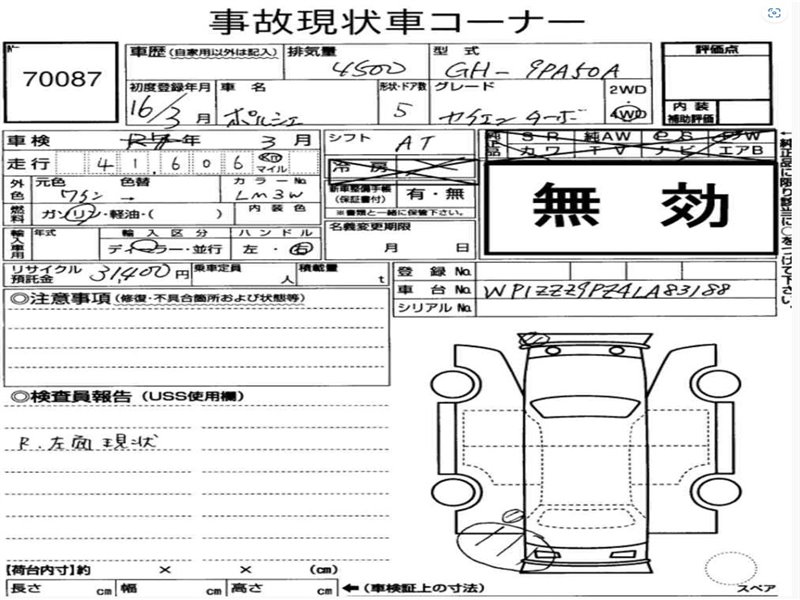 事故現状車コーナー
70087
車歴 (自家用以外は記入)
排気量 4500
型式 GH-9PA50A
評価点
初度登録年月 16/3月
車名 ポルシェ
形状・ドア数 5
グレード カイエン ターボ
2WD・4WD
内装補助評価
車検 年 3月
シフト AT
純正品 SR 純AW PS PW
カワ TV ナビ エアB
走行 41,606 Km マイル
冷房
外色 元色 ワイン 色替 → カラーNo. LM3W
新車整備手帳 (保証書付) 有・無
※書類と一緒に保管下さい。
無効
燃料 ガソリン・軽油・( ) 内装色
輸入車用 年式 輸入区分 ディーラー・並行 ハンドル 左・右
名義変更期限 月 日
リサイクル預託金 31,400円 乗車定員 人 積載量 t
登録No.
車台No. WP1ZZZ9PZ4LA83188
シリアルNo.
◎注意事項 (修復・不具合箇所および状態等)
◎検査員報告 (USS使用欄)
R.左面現状
【荷台内寸】約 × × (cm)
長さ cm 幅 cm 高さ cm ←(車検証上の寸法)
スペア
↑純正品に限り該当に○をつけて下さい。